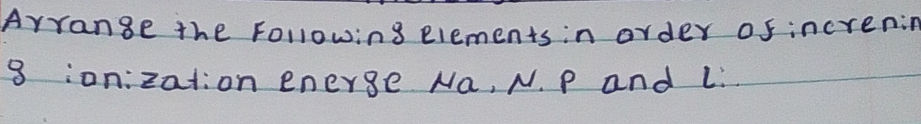 Arrange the Following elements in order of increnin
g ionization energe Na, N. P and Li.